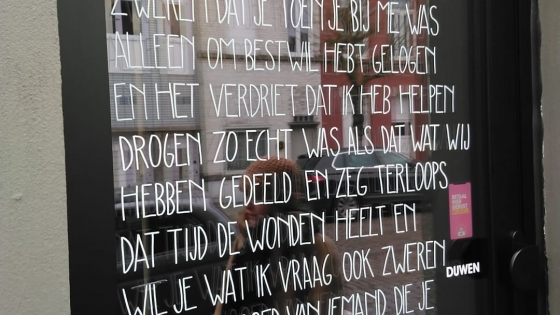 ZWEREN DAT JE TOEN JE BIJ ME WAS
ALLEEN OM BESTWIL HEBT GELOGEN
EN HET VERDRIET DAT IK HEB HELPEN
DROGEN ZO ECHT WAS ALS DAT WAT WIJ
HEBBEN GEDEELD EN ZEG TERLOOPS
DAT TIJD DE WONDEN HEELT EN
WIL JE WAT IK VRAAG OOK ZWEREN
VAN IEMAND DIE JE
DUWEN